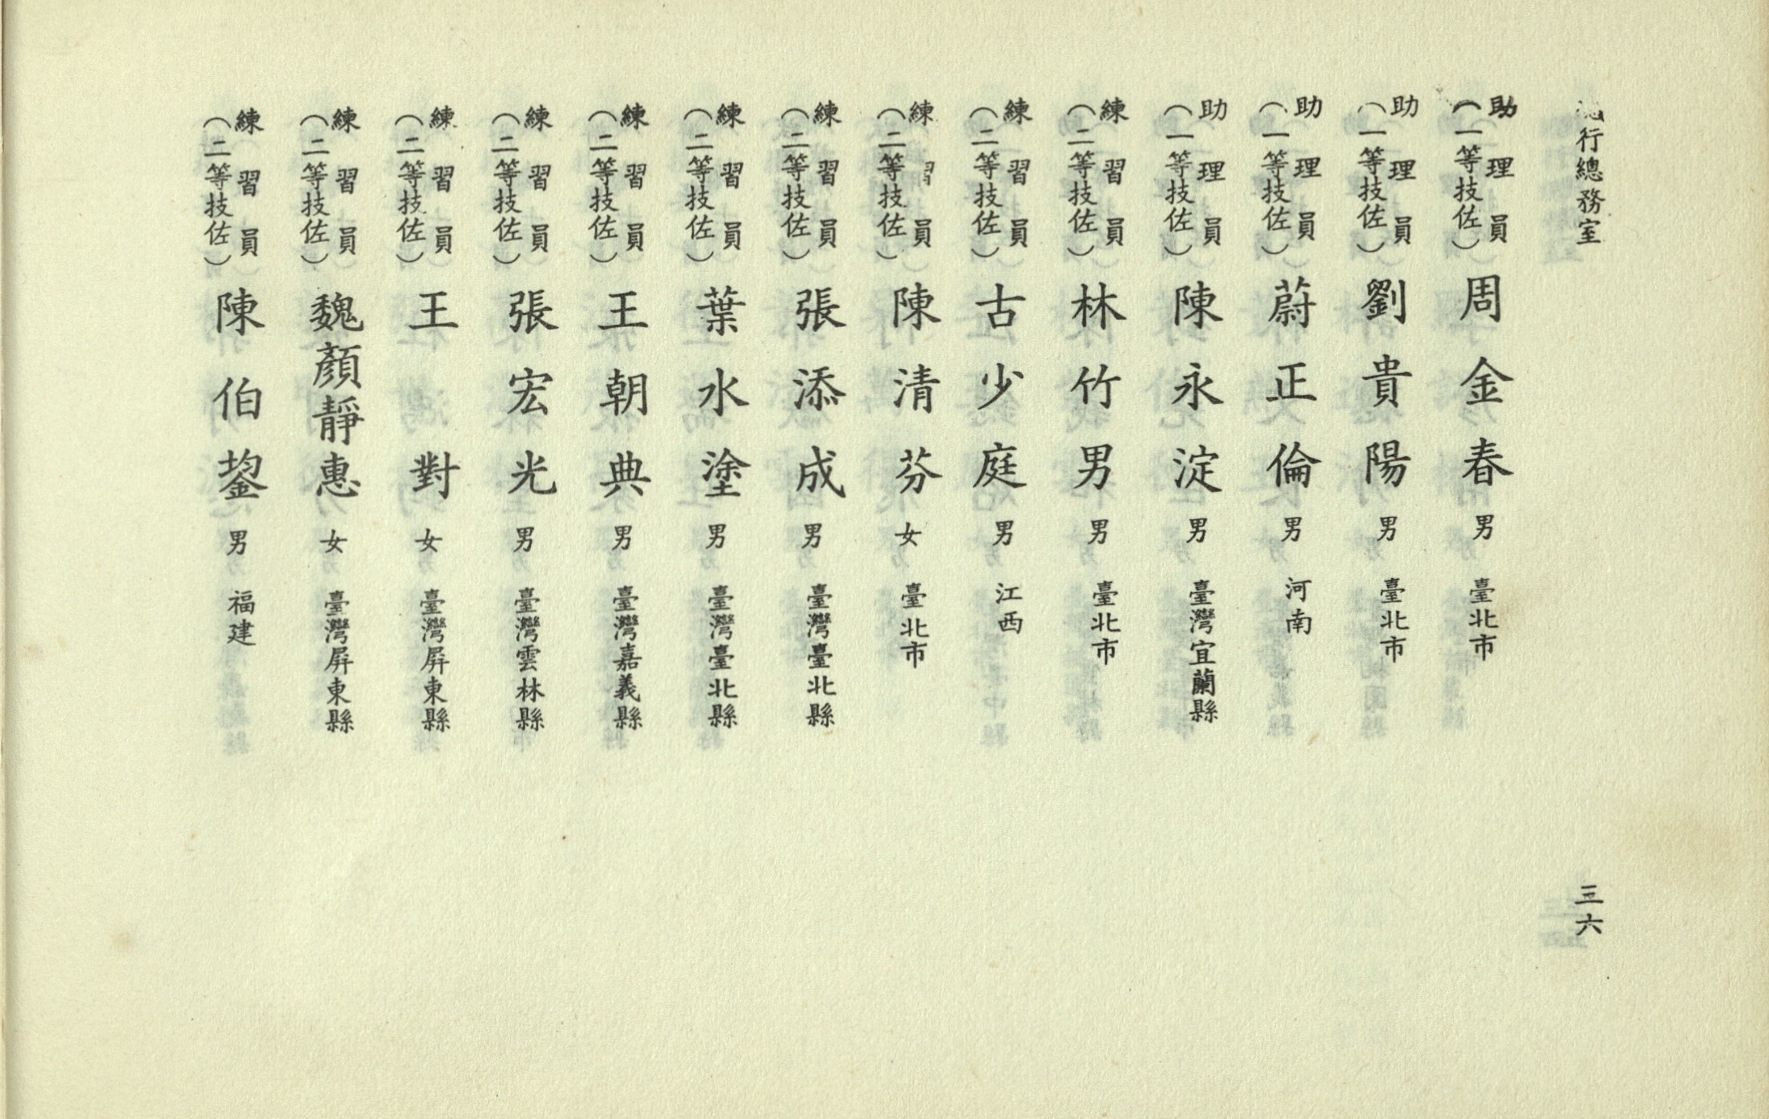 行總務室
三六
助理員（一等技佐）周金春 男 臺北市
助理員（一等技佐）劉貴陽 男 臺北市
助理員（一等技佐）蔚正倫 男 河南
助理員（一等技佐）陳永淀 男 臺灣宜蘭縣
練習員（二等技佐）林竹男 男 臺北市
練習員（二等技佐）古少庭 男 江西
練習員（二等技佐）陳清芬 女 臺北市
練習員（二等技佐）張添成 男 臺灣臺北縣
練習員（二等技佐）葉水塗 男 臺灣臺北縣
練習員（二等技佐）王朝典 男 臺灣嘉義縣
練習員（二等技佐）張宏光 男 臺灣雲林縣
練習員（二等技佐）王對 女 臺灣屏東縣
練習員（二等技佐）魏顏靜惠 女 臺灣屏東縣
練習員（二等技佐）陳伯鋆 男 福建